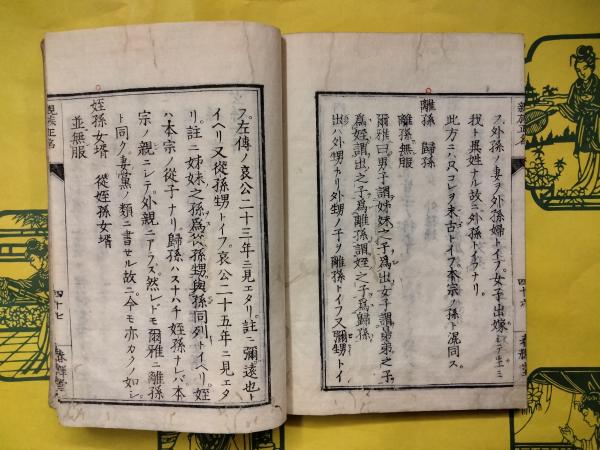 フ外孫ノ妻ヲ外孫婦トイフ女子出嫁
我ト異姓ナル故ニ外孫トイフナリ
此方ニハ又コレヲ末古トイフ本宗ノ孫ト混同ス
離孫 歸孫
離孫無服
爾雅曰男子謂姊妹之子爲出女子謂晜弟之子
爲姪謂出之子爲離孫謂姪之子爲歸孫
出ハ外甥ナリ外甥ノ子ヲ離孫トイフ又彌甥トイ
四十六
フ左傳ノ哀公二十三年ニ見エタリ註ニ彌遠也ト
イヘリ又從孫甥トイフ哀公二十五年ニ見エタ
リ註ニ姊妹之孫爲從孫甥與孫同列トイヘリ姪
ハ本宗ノ從子ナリ歸孫ハストハチ姪孫ナレバ本
宗ノ親ニシテ外親ニアラズ然レドモ爾雅ニ離孫
ト同ク妻黨ノ類ニ書セル故ニ今モ亦カクノ如シ
姪孫女壻 從姪孫女壻
並無服
親族正名
四十七